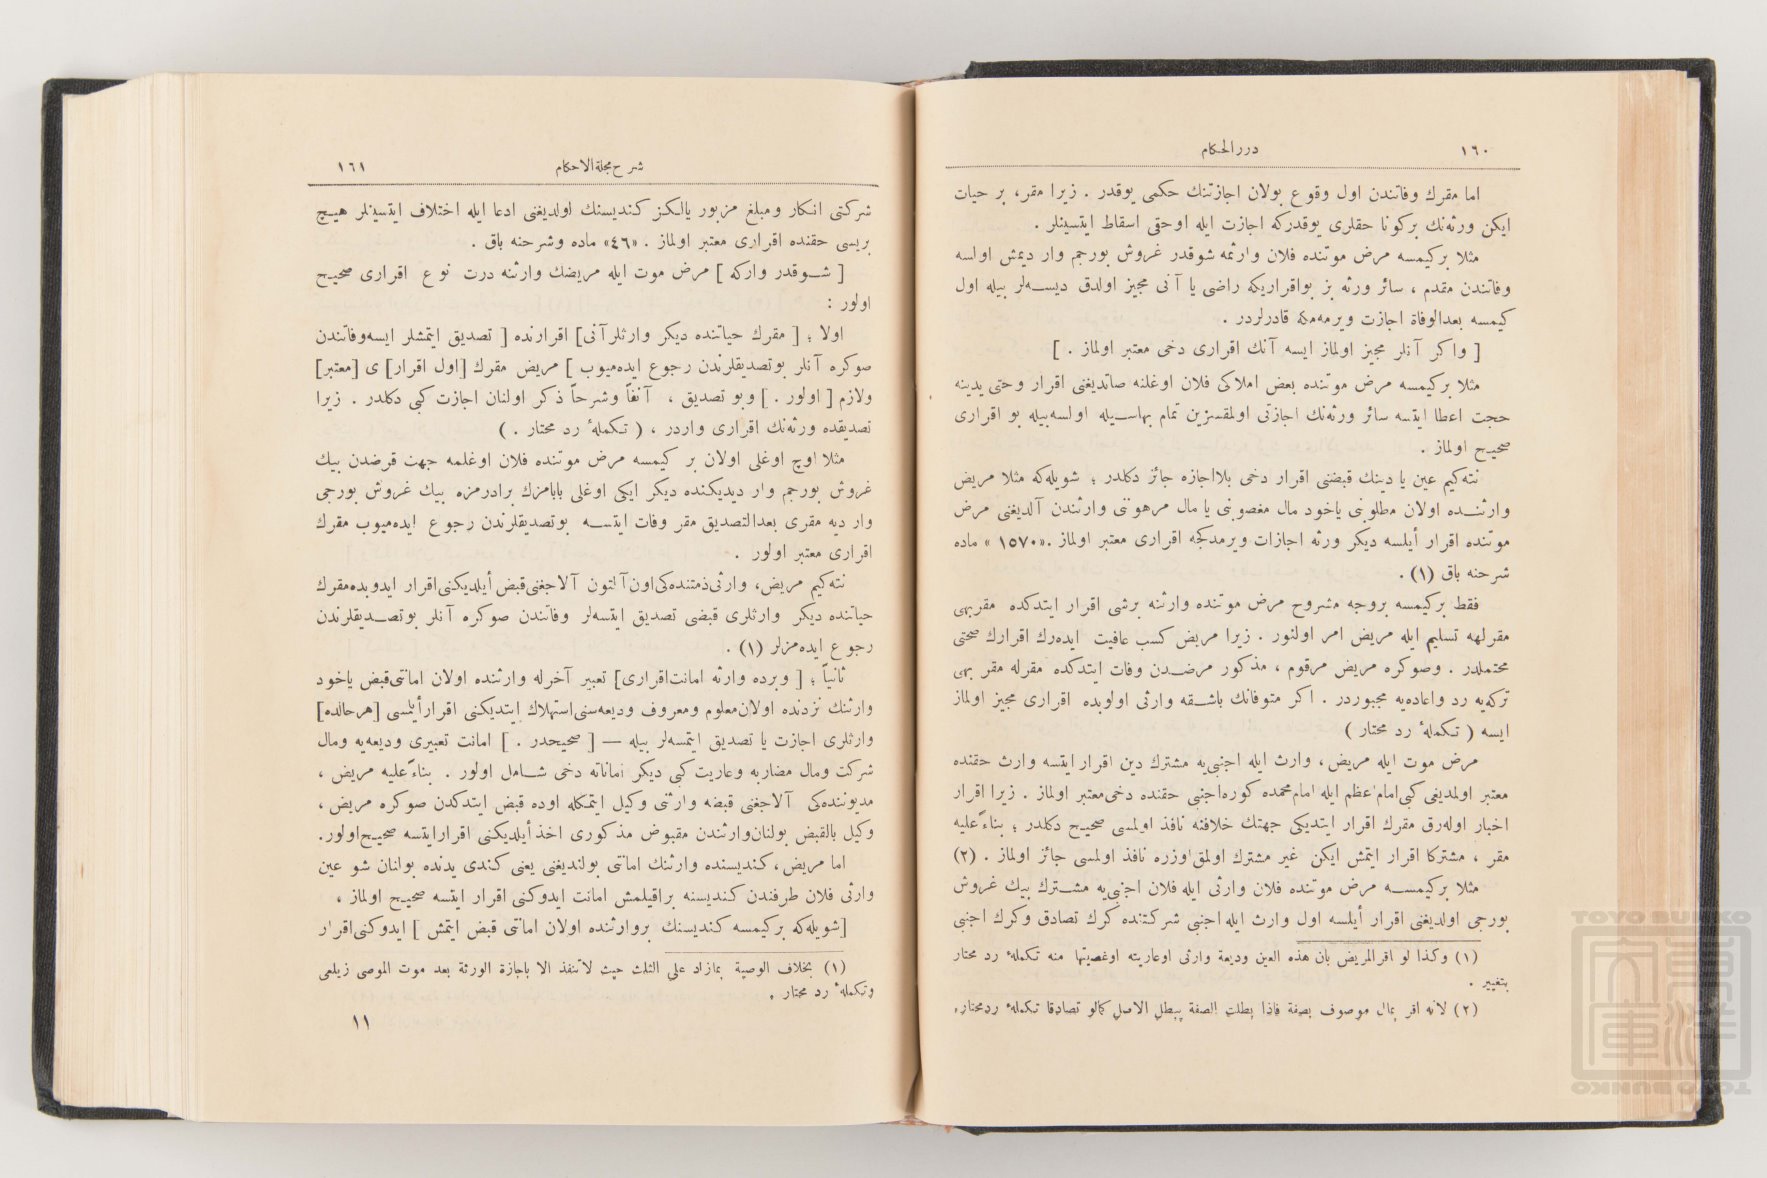 ١٦٠
دررالحكام
اما مقرك وفاتندن اول وقوع بولان اجازتنك حكمی یوقدر . زیرا مقر، بر حیات
ایكن ورثه‌نك بركونا حقلری یوقدركه اجازت ایله اوحقی اسقاط ایتسینلر .
مثلا بركیمسه مرض موتنده فلان وارثمه شوقدر غروش بورجم وار دیمش اولسه
وفاتندن مقدم ، سائر ورثه بز بواقراریكه راضی یا آنی مجیز اولدق دیسه‌لر بیله اول
كیمسه بعدالوفاة اجازت ویرمه‌مكه قادرلردر .
[ واكر آنلر مجیز اولماز ایسه آنك اقراری دخی معتبر اولماز . ]
مثلا بركیمسه مرض موتنده بعض املاكی فلان اوغلنه صاتدیغنی اقرار وحتی یدینه
حجت اعطا ایتسه سائر ورثه‌نك اجازتی اولمقسزین تمام بهاسیله اولسه‌بیله بو اقراری
صحیح اولماز .
نته‌كیم عین یا دینك قبضنی اقرار دخی بلااجازه جائز دكلدر ؛ شویله‌كه مثلا مریض
وارثنده اولان مطلوبنی یاخود مال مغصوبنی یا مال مرهوننی وارثندن آلدیغنی مرض
موتنده اقرار أیلسه دیكر ورثه اجازات ویرمدكجه اقراری معتبر اولماز .«١٥٧٠ » ماده
شرحنه باق (١) .
فقط بركیمسه بروجه مشروح مرض موتنده وارثنه برشی اقرار ایتدكده مقربهی
مقرلهه تسلیم ایله مریض امر اولنور . زیرا مریض كسب عافیت ایده‌رك اقرارك صحتی
محتملدر . وصوكره مریض مرقوم ، مذكور مرضدن وفات ایتدكده مقرله مقر بهی
تركه‌یه رد واعاده‌یه مجبوردر . اكر متوفانك باشقه وارثی اولوبده اقراری مجیز اولماز
ایسه ( تكمله‌ٔ رد محتار )
مرض موت ایله مریض ، وارث ایله اجنبی‌یه مشترك دین اقرار ایتسه وارث حقنده
معتبر اولمدیغی كبی امام اعظم ایله امام محمده كوره اجنبی حقنده دخی معتبر اولماز . زیرا اقرار
اخبار اوله‌رق مقرك اقرار ایتدیكی جهتك خلافنه نافذ اولمسی صحیح دكلدر ؛ بناءً علیه
مقر ، مشتركا اقرار ایتمش ایكن غیر مشترك اولمق اوزره نافذ اولمسی جائز اولماز . (٢)
مثلا بركیمسه مرض موتنده فلان وارثی ایله فلان اجنبی‌یه مشترك بیك غروش
بورجی اولدیغنی اقرار أیلسه اول وارث ایله اجنبی شركتنده كرك تصادق وكرك اجنبی
(١) وكذا لو اقرالمریض بان هذه العین ودیعة وارثی اوعاریته اوغصبتها منه تكمله‌ٔ رد محتار
بتغییر .
(٢) لانه اقر بمال موصوف بصفة فاذا بطلت الصفة یبطل الاصل كمالو تصادقا تكمله‌ٔ ردمحتار.
شرح مجلة الاحكام
١٦١
شركتی انكار ومبلغ مزبور یالكز كندیسنك اولدیغنی ادعا ایله اختلاف ایتسینلر هیچ
بریسی حقنده اقراری معتبر اولماز . «٤٦» ماده وشرحنه باق .
[ شوقدر واركه ] مرض موت ایله مریضك وارثنه درت نوع اقراری صحیح
اولور :
اولا ؛ [ مقرك حیاتنده دیكر وارثلر آنی ] اقرارنده [ تصدیق ایتمشلر ایسه وفاتندن
صوكره آنلر بوتصدیقلرندن رجوع ایده‌میوب ] مریض مقرك [اول اقرار] ی [معتبر]
ولازم [ اولور . ] وبو تصدیق ، آنفاً وشرحاً ذكر اولنان اجازت كبی دكلدر . زیرا
تصدیقده ورثه‌نك اقراری واردر ، ( تكمله‌ٔ رد محتار . )
مثلا اوچ اوغلی اولان بر كیمسه مرض موتنده فلان اوغلمه جهت قرضدن بیك
غروش بورجم وار دیدیكنده دیكر ایكی اوغلی بابامزك برادرمزه بیك غروش بورجی
وار دیه مقری بعدالتصدیق مقر وفات ایتسه بوتصدیقلرندن رجوع ایده‌میوب مقرك
اقراری معتبر اولور .
نته‌كیم مریض، وارثی ذمتنده‌كی اون آلتون آلاجغنی قبض أیلدیكنی اقرار ایدوبده مقرك
حیاتنده دیكر وارثلری قبضی تصدیق ایتسه‌لر وفاتندن صوكره آنلر بوتصدیقلرندن
رجوع ایده‌مزلر (١) .
ثانیاً ؛ [ وبرده وارثه امانت اقراری] تعبیر آخرله وارثنده اولان امانتی قبض یاخود
وارثنك نزدنده اولان معلوم ومعروف ودیعه‌سنی استهلاك ایتدیكنی اقرار أیلمسی [هرحالده]
وارثلری اجازت یا تصدیق ایتمسه‌لر بیله — [ صحیحدر . ] امانت تعبیری ودیعه‌یه ومال
شركت ومال مضاربه وعاریت كبی دیكر اماناته دخی شامل اولور . بناءً علیه مریض ،
مدیوننده‌كی آلاجغنی قبضه وارثنی وكیل ایتمكله اوده قبض ایتدكدن صوكره مریض ،
وكیل بالقبض بولنان وارثندن مقبوض مذكوری اخذ أیلدیكنی اقرار ایتسه صحیح اولور.
اما مریض ، كندیسنده وارثنك امانتی بولندیغنی یعنی كندی یدنده بولنان شو عین
وارثی فلان طرفندن كندیسنه براقیلمش امانت ایدوكنی اقرار ایتسه صحیح اولماز ،
[شویله‌كه بركیمسه كندیسنك بروارثنده اولان امانتی قبض ایتمش ] ایدوكنی اقرار
(١) بخلاف الوصیة بمازاد علی الثلث حیث لاتنفذ الا باجازة الورثة بعد موت الموصی زیلعی
وتكمله‌ٔ رد محتار .
١١
TOYO BUNKO
TOYO BUNKO